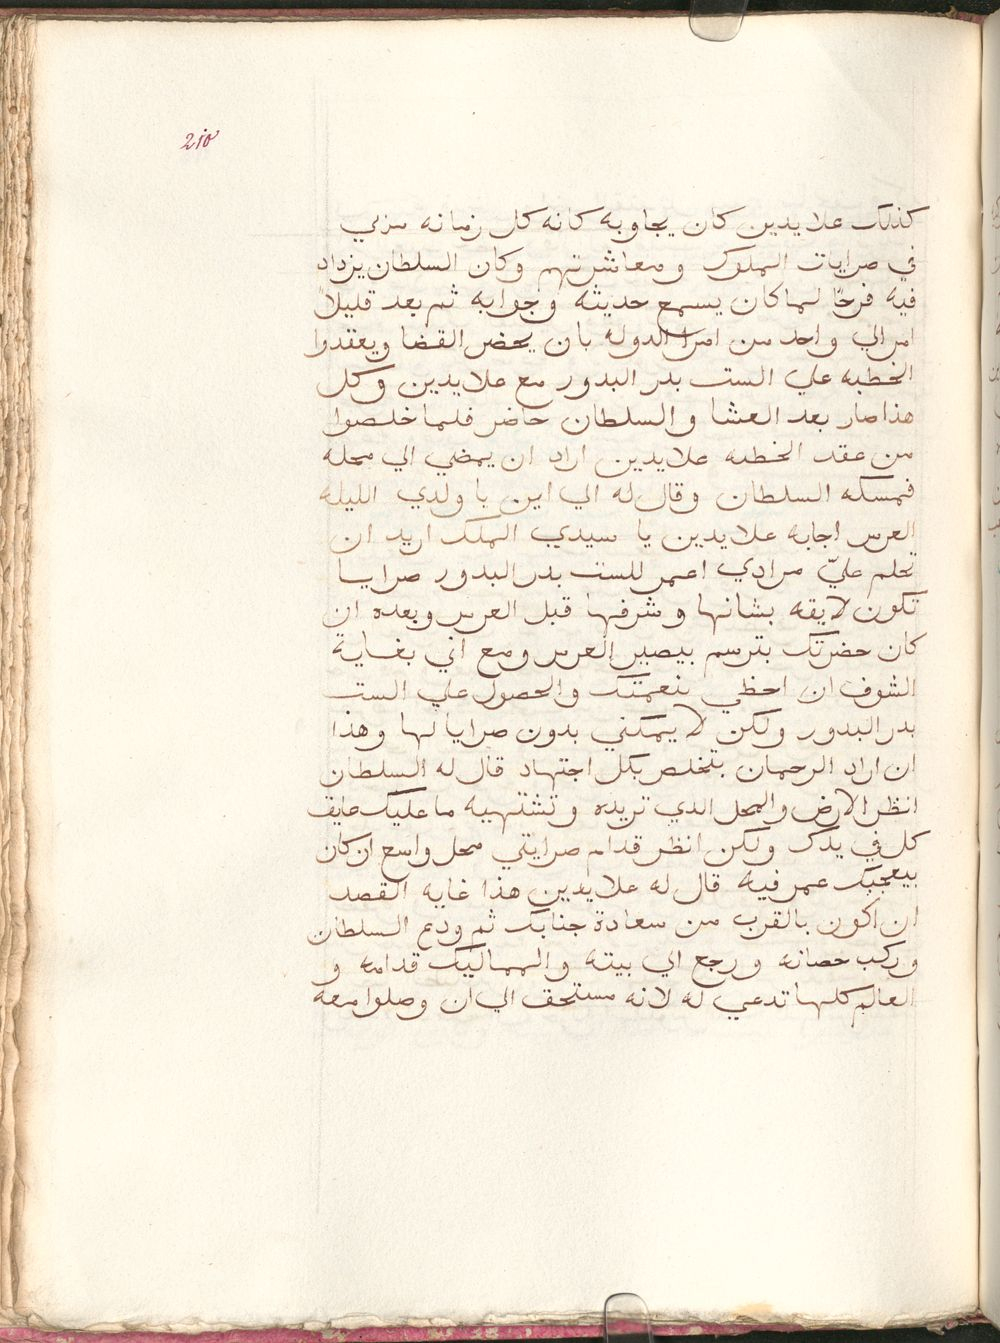 210
كذلك علا يدين كان يجاوبه كانه كل زمانه مربي
في صرايات الملوك ومعاشرتهم وكان السلطان يزداد
فيه فرحًا لما كان يسمع حديثه وجوابه ثم بعد قليلاً
امر الي واحد من امرا الدوله بان يحضر القضا ويعقدوا
الخطبه علي الست بدر البدور مع علا يدين وكل
هذا صار بعد العشا والسلطان حاضر فلما خلصوا
من عقد الخطبه علا يدين اراد ان يمضي الي محله
فمسكه السلطان وقال له الي اين يا ولدي الليله
العرس اجابه علا يدين يا سيدي الملك اريد ان
تحلم عليّ مرادي اعمر للست بدر البدور صرايا
تكون لايقه بشانها وشرفها قبل العرس وبعده ان
كان حضرتك بترسم بيصير العرس ومع اني بغاية
الشوف ان احظي بنعمتك والحصول علي الست
بدر البدور ولكن لا يمكني بدون صرايا لها وهذا
ان اراد الرحمان بتخلص بكل اجتهاد قال له السلطان
انظر الارض والمحل الذي تريده وتشتهيه ما عليك عايف
كل في يدك ولكن انظر قدام صرايتي محل واسع ان كان
بيعجبك عمر فيه قال له علا يدين هذا غايه القصد
ان اكون بالقرب من سعادة جنابك ثم ودع السلطان
وركب حصانه ورجع الي بيته والمماليك قدامه و
العالم كلها تدعي له لانه مستحق الي ان وصلوا معه